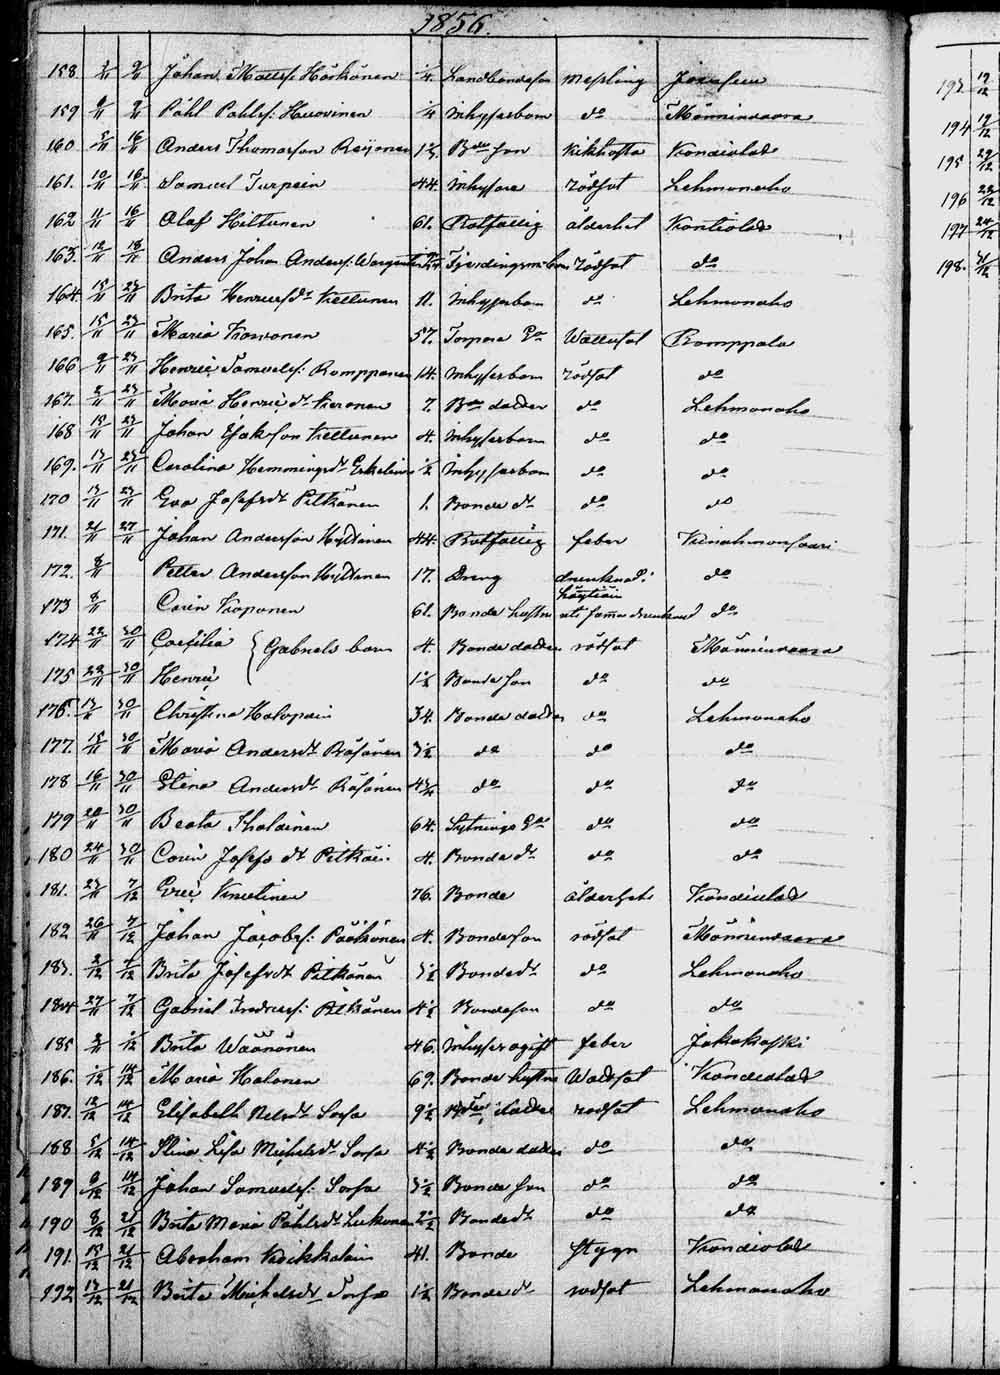 1856.
158 2/11 9/11 Johan Mattsf. Hörkönen 1/4. Landbondeson Messling Jouhseu
159 9/11 Påhl Pahlsf. Huovinen 1/4 inhysesbarn do Mönninvaara
160 16/11 Anders Thomasson Reijonen Bde son kikhosta Kondiolax
161. 10/11 16/11 Samuel Turpein 44. inhyses rödsot Lehmonaho
162 11/11 16/11 Olof Hiltunen 61. Rotfattig ålderhet Kontiolax
163. 12/11 18/11 Anders Johan Andersf. rödsot do
164. 15/11 23/11 Brita Henricsdr Kettunen 11. inhysesbarn do Lehmonaho
165. 15/11 23/11 Maria Korvonen 57. Torpare Wattusot Romppala
166 9/11 23/11 Henric Samuelsf. Romppanen 14. inhysesbarn rödsot do
167. 23/11 Maria Henricsdr 7. Bde dotter do Lehmonaho
168 15/11 23/11 Johan Isakson Kettunen 4. inhysesbarn do do
169. 17/11 23/11 Carolina Hemmingsdr 1/2 inhysesbarn do do
170 17/11 23/11 Eva Josefsdr Pitkänen 1. Bonde dr do do
171. 21/11 27/11 Johan Anderson Hyttinen 44. Rotfattig feber Kinahmonsaari
172. 8/11 Petter Anderson Hyttinen 17. Dreng drunknad. do
173 8/11 Carin Koponen 61. Bonde hustru do
174 22/11 30/11 Caesilia { Gabriels barn 4. Bonde dotter rödsot Mönninvaara
175 22/11 30/11 Henric 1 1/2 Bonde son do do
176. 30/11 Christina Halopain 34. Bonde dotter do Lehmonaho
177. 15/11 30/11 Maria Andersdr Räsänen 3 1/2 do do do
178 16/11 30/11 Elina Andersdr Räsänen 4 3/4 do do do
179 20/11 30/11 Beata Ihalainen 64. Sytnings do do
180 24/11 30/11 Carin Josefs dr Pitkäi. 4. Bonde dr do do
181. 23/11 7/12 Eric 76. Bonde ålderhet Kondiolax
182 26/11 7/12 Johan Jacobsf. Pääkönen 4. Bondeson rödsot Mönninvaara
183. 7/12 Brita Josefsdr Pitkänen 3 1/2 Bonde dr do Lehmonaho
184 27/11 7/12 Gabriel Pitkänen 4 1/2 Bondeson do do
185 Brita Wäänänen 46. inhyses ogift feber Jakokoski
186. 14/12 Maria Halonen 69. Bonde hustru Watsot Kondiolax
187. 12/12 14/12 Elisabeth Nilsdr Sorsa 9 1/2 rödsot Lehmonaho
188 5/12 14/12 Stina Lisa Michelsdr Sorsa 4 1/2 Bonde dotter do do
189 9/12 14/12 Johan Samuelsf. Sorsa 3 1/2 Bonde son do do
190 8/12 21/12 Brita Maria Påhlsdr Bonde dr do do
191. 15/12 21/12 Abraham Koikkalain 41. Bonde stygn Kondiolax
192 17/12 21/12 Brita Michelsdr Sorsa 1 1/2 Bonde dr rödsot Lehmonaho
193 19/12
194 19/12
195 22/12
196 22/12
197 24/12
198.